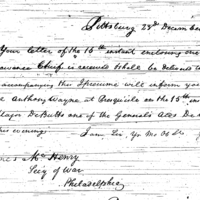 Pittsburg 28th Decem
Your letter of the 15th instant enclosing one
Chief is received & shall be delivered t
accompanying this I presume will inform you
Anthony Wayne, at Presquile on the 15th in
Major DeButts one of the Generals Aids De
this evening I am Sir Yr Mo Ob
Mc Henry
Secy of War
Philadelphia